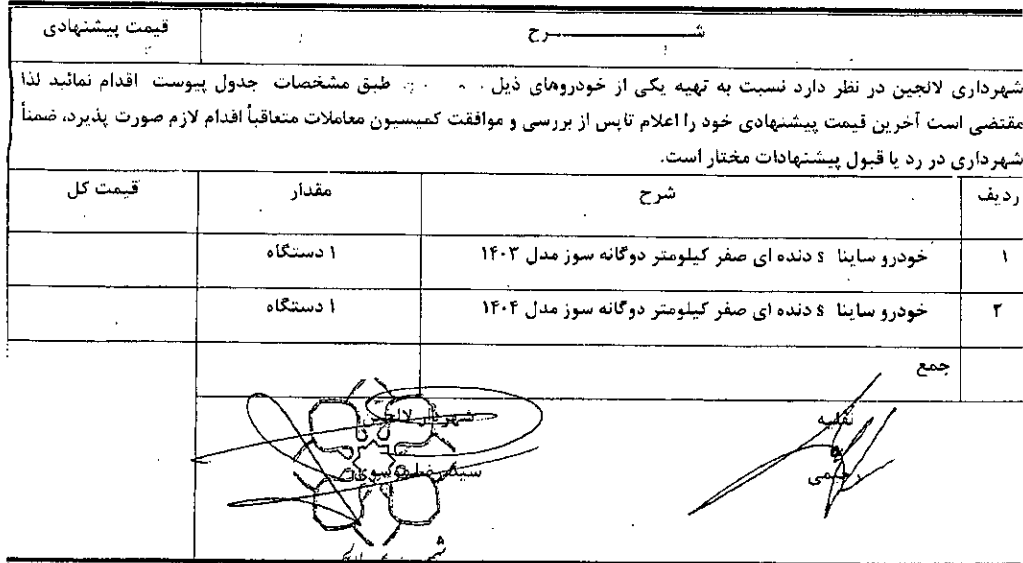 شرح قیمت پیشنهادی
شهرداری لالجین در نظر دارد نسبت به تهیه یکی از خودروهای ذیل طبق مشخصات جدول پیوست اقدام نمائید لذا
مقتضی است آخرین قیمت پیشنهادی خود را اعلام تاپس از بررسی و موافقت کمیسیون معاملات متعاقباً اقدام لازم صورت پذیرد، ضمناً
شهرداری در رد یا قبول پیشنهادات مختار است.
ردیف شرح مقدار قیمت کل
۱ خودرو ساینا s دنده ای صفر کیلومتر دوگانه سوز مدل ۱۴۰۳ ۱ دستگاه
۲ خودرو ساینا s دنده ای صفر کیلومتر دوگانه سوز مدل ۱۴۰۴ ۱ دستگاه
جمع
نقلیه شهردار لالجین
رحیمی سید رضا موسوی